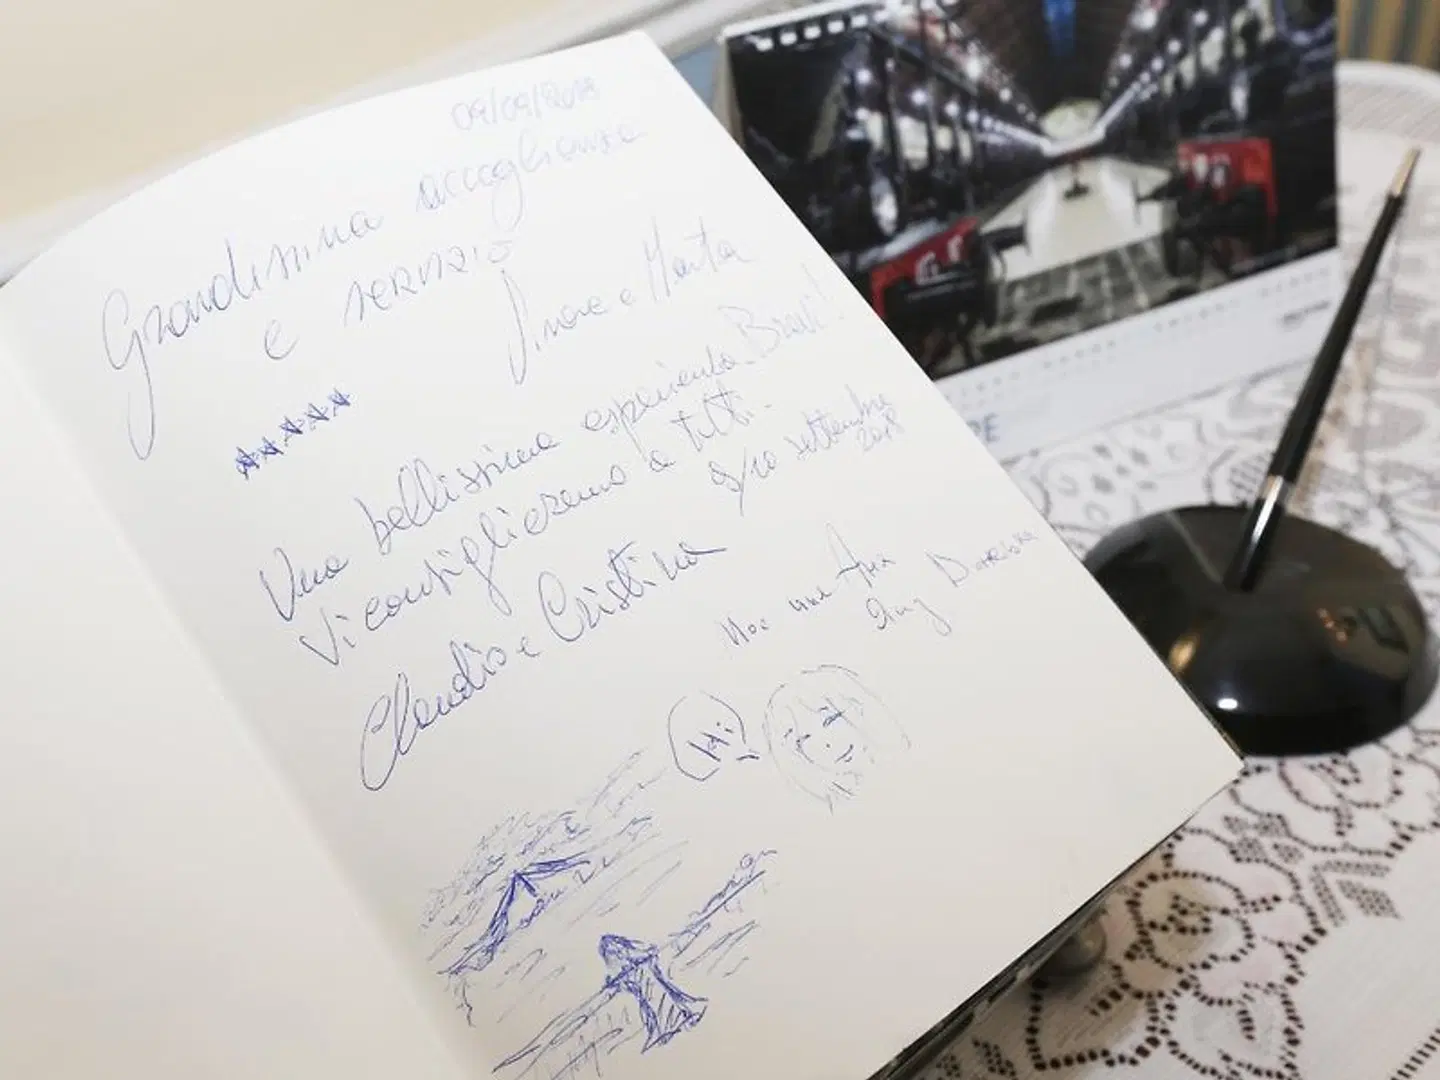 09/09/2018
Grandissima accoglienza
e servizio
e Marta
Una bellissima esperienza. Bravi!
Vi consiglieremo a tutti.
9/10 settembre
2018
Claudio e Cristina
Мое имя Аня